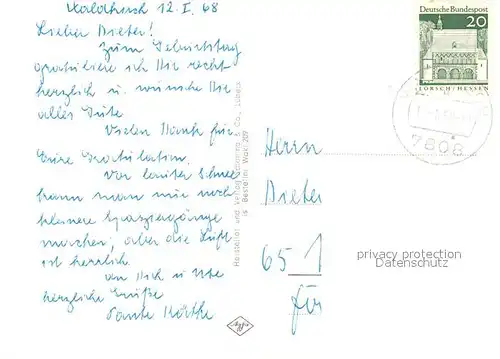 Waldkirch 12. I. 68
Lieber Dieter!
Zum Geburtstag
gratuliere ich Dir recht
herzlich u. wünsche Dir
alles Gute
Vielen Dank für
Eure Gratulation.
Vor lauter Schnee
kann man nur noch
kleinere Spaziergänge
machen, aber die Luft
ist herrlich
An Dich u. Ute
herzliche Grüße
Tante Käthe
Hersteller und Verlag
Co., Lübeck
Bestell-Nr.
Deutsche Bundespost
20
LORSCH/HESSEN
7808
Herrn
Dieter
65 1
privacy protection
Datenschutz
Agfa